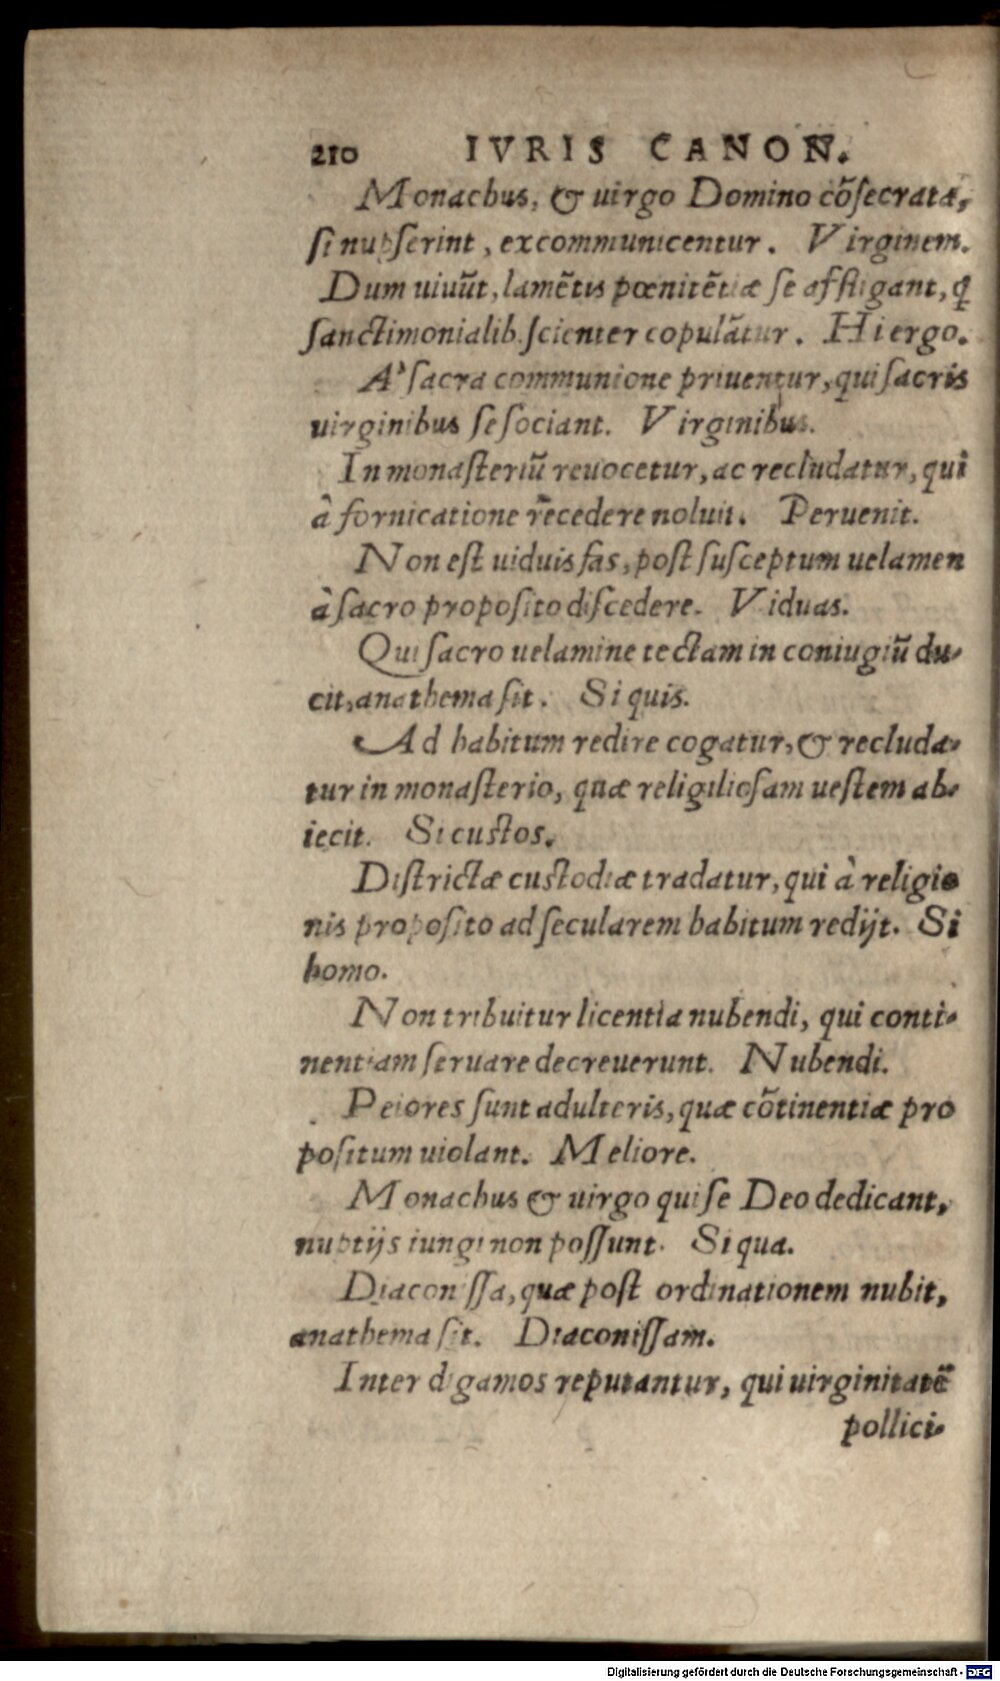 210 IVRIS CANON.
Monachus, & uirgo Domino cõſecrata,
ſi nupſerint, excommunicentur. Virginem.
Dum uiuũt, lamẽtis pœnitẽtiæ ſe affligant, ꝗ
ſanctimonialib. ſcienter copulãtur. Hi ergo.
A' ſacra communione priuentur, qui ſacris
uirginibus ſe ſociant. Virginibus.
In monaſteriũ reuocetur, ac recludatur, qui
à fornicatione recedere noluit. Peruenit.
Non eſt uiduis fas, poſt ſuſceptum uelamen
à ſacro propoſito diſcedere. Viduas.
Qui ſacro uelamine tectam in coniugiũ du-
cit, anathema ſit. Si quis.
Ad habitum redire cogatur, & recluda-
tur in monaſterio, quæ religilioſam ueſtem ab-
iecit. Si cuſtos.
Diſtrictæ cuſtodiæ tradatur, qui à religio
nis propoſito ad ſecularem habitum redijt. Si
homo.
Non tribuitur licentia nubendi, qui conti-
nentiam ſeruare decreuerunt. Nubendi.
Peiores ſunt adulteris, quæ cõtinentiæ pro
poſitum uiolant. Meliore.
Monachus & uirgo qui ſe Deo dedicant,
nuptijs iungi non poſſunt. Si qua.
Diaconiſſa, quæ poſt ordinationem nubit,
anathema ſit. Diaconiſſam.
Inter digamos reputantur, qui uirginitatẽ
pollici-
Digitalisierung gefördert durch die Deutsche Forschungsgemeinschaft - DFG